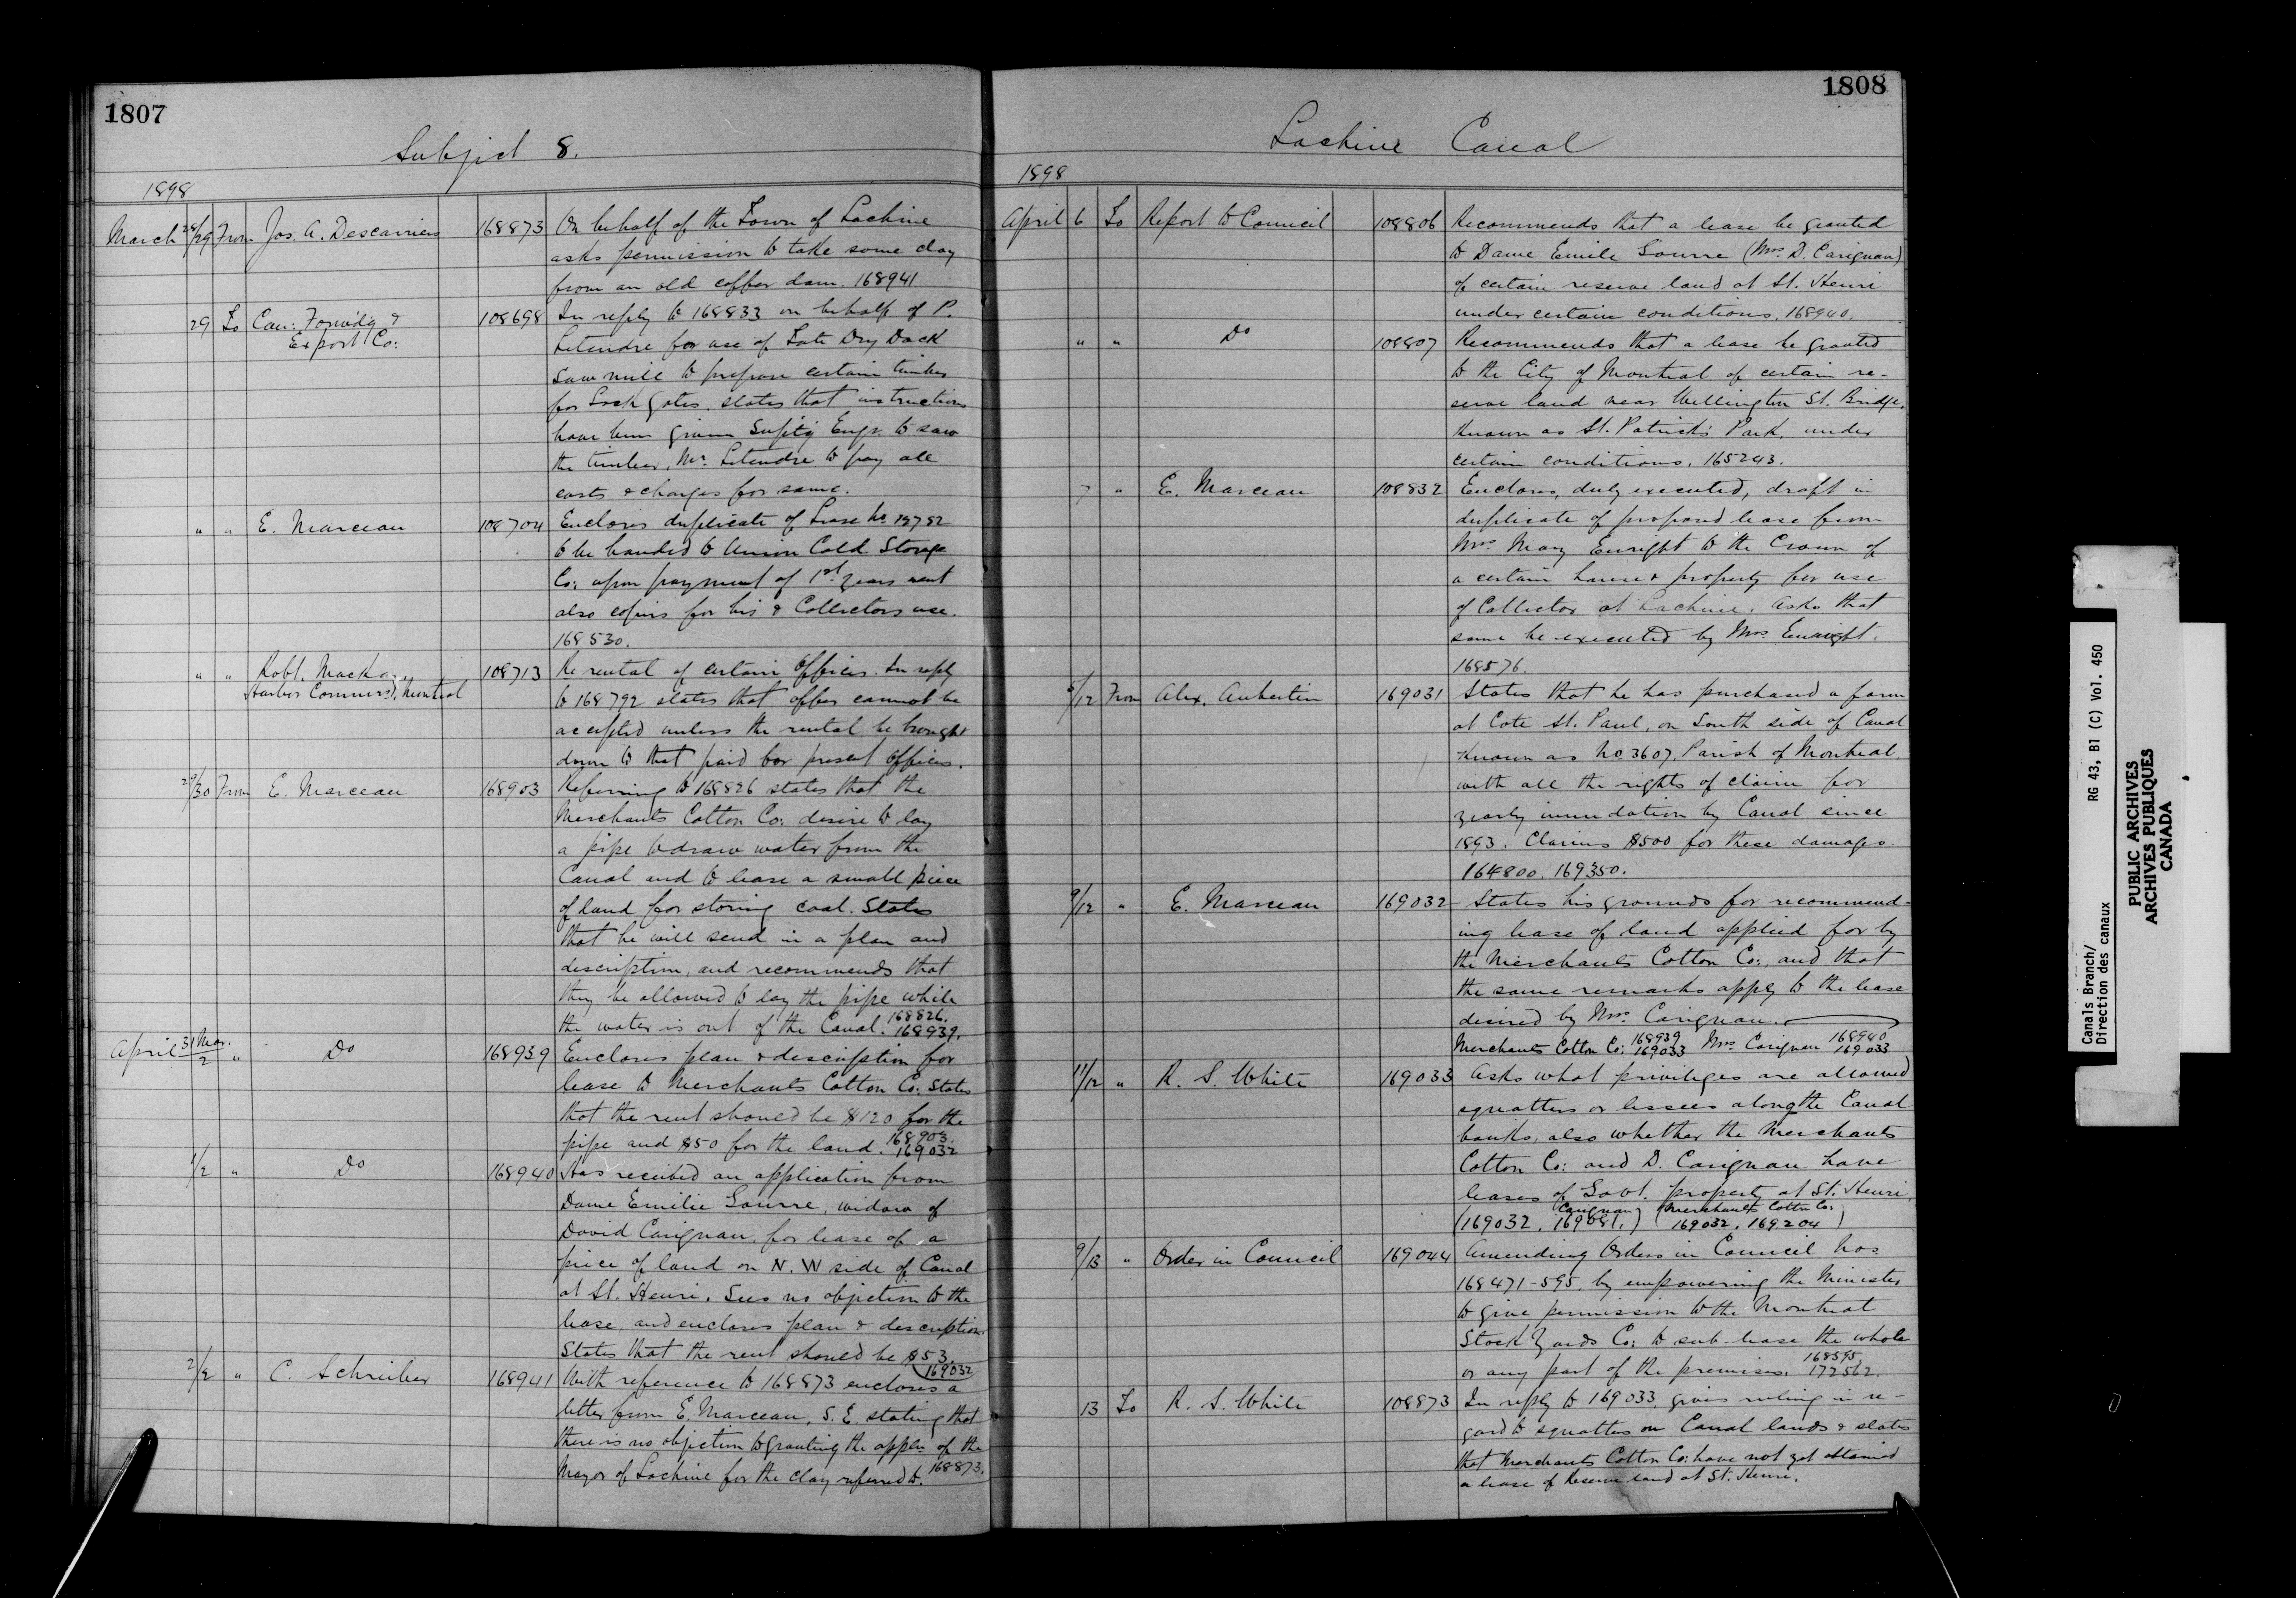 1807
Subject 8.
1898
March 28/29 From Jos. A. Descarries 168873 On behalf of the Town of Lachine
asks permission to take some clay
from an old coffer dam. 168941
29 To Can: Forwdg &
Export Co: 108698 In reply to 168833 on behalf of P.
Letendre for use of Late Dry Dock
Saw mill to prepare certain timber
for Lock gates. States that instructions
have been given Suptg Engr. to saw
the timber, Mr. Letendre to pay all
costs & charges for same.
" " E. Marceau 108704 Encloses duplicate of Lease No. 13792
to be handed to Union Cold Storage
Co: upon payment of 1st years rent
also copies for his & Collectors use.
168530.
" " Robt. Mackay,
Harbor Commrs), Montreal 108713 Re rental of certain Offices. In reply
to 168792 states that offer cannot be
accepted unless the rental be brought
down to that paid for present Offices.
29/30 From E. Marceau 168903 Referring to 168826 states that the
Merchants Cotton Co: desire to lay
a pipe to draw water from the
Canal and to lease a small piece
of land for storing coal. States
that he will send in a plan and
description, and recommends that
they be allowed to lay the pipe while
the water is out of the Canal. 168826. 168939.
April 31 Mar./2 " Do 168939 Encloses plan & description for
lease to Merchants Cotton Co: States
that the rent should be $120 for the
pipe and $50 for the land. 168903. 169032
1/2 " Do 168940 Has received an application from
Dame Emilie Gourre, widow of
David Carignan, for lease of a
piece of land on N. W side of Canal
at St. Henri. Sees no objection to the
lease, and encloses plan & description.
States that the rent should be $53.
169032
2/2 " C. Schreiber 168941 With reference to 168873 encloses a
letter from E. Marceau, S. E. stating that
there is no objection to granting the appln of the
Mayor of Lachine for the clay referred to. 168873.
1808
Lachine Canal
1898
April 6 To Report to Council 108806 Recommends that a lease be granted
to Dame Emile Gourre (Mrs. D. Carignan)
of certain reserve land at St. Henri
under certain conditions. 168940.
" " Do 108807 Recommends that a lease be granted
to the City of Montreal of certain re-
serve land near Wellington St. Bridge,
Known as St. Patrick's Park, under
certain conditions. 165243.
7 " E. Marceau 108832 Encloses, duly executed, draft in
duplicate of proposed lease from
Mrs. Mary Enright to the Crown of
a certain house & property for use
of Collector at Lachine. Asks that
same be executed by Mrs. Enright.
168576.
6/12 From Alex. Aubertin 169031 States that he has purchased a farm
at Cote St. Paul, on South side of Canal
Known as No 3607, Parish of Montreal.
with all the rights of claim for
yearly inundation by Canal since
1893. Claims $500 for these damages.
164800. 169350.
9/12 " E. Marceau 169032 States his grounds for recommend-
ing lease of land applied for by
the Merchants Cotton Co:, and that
the same remarks apply to the lease
desired by Mrs. Carignan.
Merchants Cotton Co: 168939 169033 Mrs. Carignan 168940 169033
11/12 " R. S. White 169033 Asks what privileges are allowed
squatters or lessees along the Canal
banks, also whether the Merchants
Cotton Co: and D. Carignan have
leases of Govt. property at St. Henri.
Carignan Merchants Cotton Co:
(169032, 169081,) (169032, 169204)
9/13 " Order in Council 169044 Amending Orders in Council Nos
168471-595, by empowering the Minister
to give permission to the Montreal
Stock Yards Co: to sub-lease the whole
or any part of the premises. 168595, 172562.
13 To R. S. White 108873 In reply to 169033, gives ruling in re-
gard to squatters on Canal lands & states
that Merchants Cotton Co: have not yet obtained
a lease of Reserve land at St. Henri.
Canals Branch/
Direction des canaux
RG 43, B1 (C) Vol. 450
PUBLIC ARCHIVES
ARCHIVES PUBLIQUES
CANADA